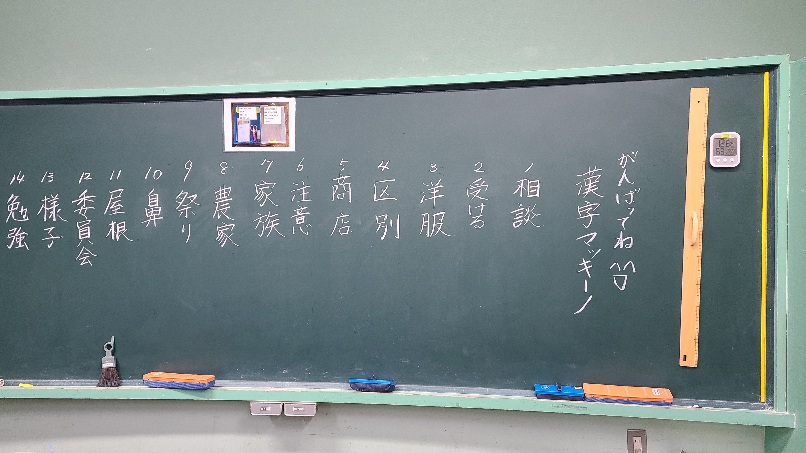 がんばってね ^▽^
漢字マッキーノ
1 相談
2 受ける
3 洋服
4 区別
5 商店
6 注意
7 家族
8 農家
9 祭り
10 鼻
11 屋根
12 委員会
13 様子
14 勉強